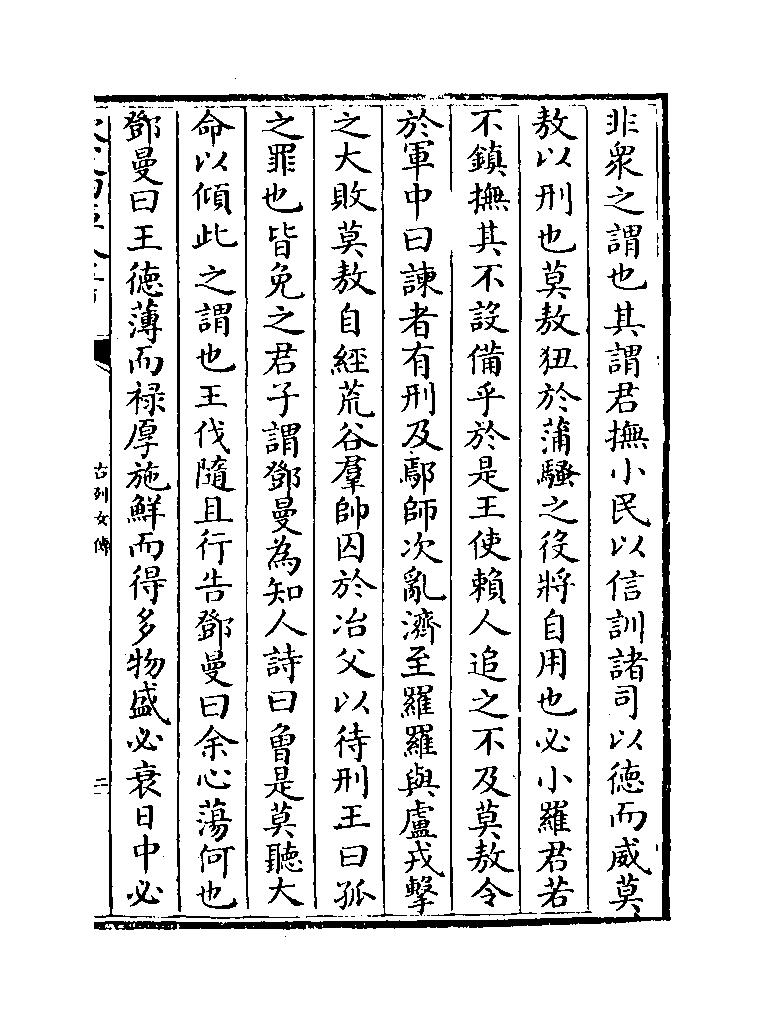 非衆之謂也其謂君撫小民以信訓諸司以徳而威莫
敖以刑也莫敖狃於蒲騷之役將自用也必小羅君若
不鎮撫其不設備乎於是王使賴人追之不及莫敖令
於軍中曰諫者有刑及鄢師次亂濟至羅羅與盧戎擊
之大敗莫敖自經荒谷羣帥囚於冶父以待刑王曰孤
之罪也皆免之君子謂鄧曼為知人詩曰曾是莫聽大
命以傾此之謂也王伐隨且行告鄧曼曰余心蕩何也
鄧曼曰王徳薄而禄厚施鮮而得多物盛必衰日中必
古列女傳
二